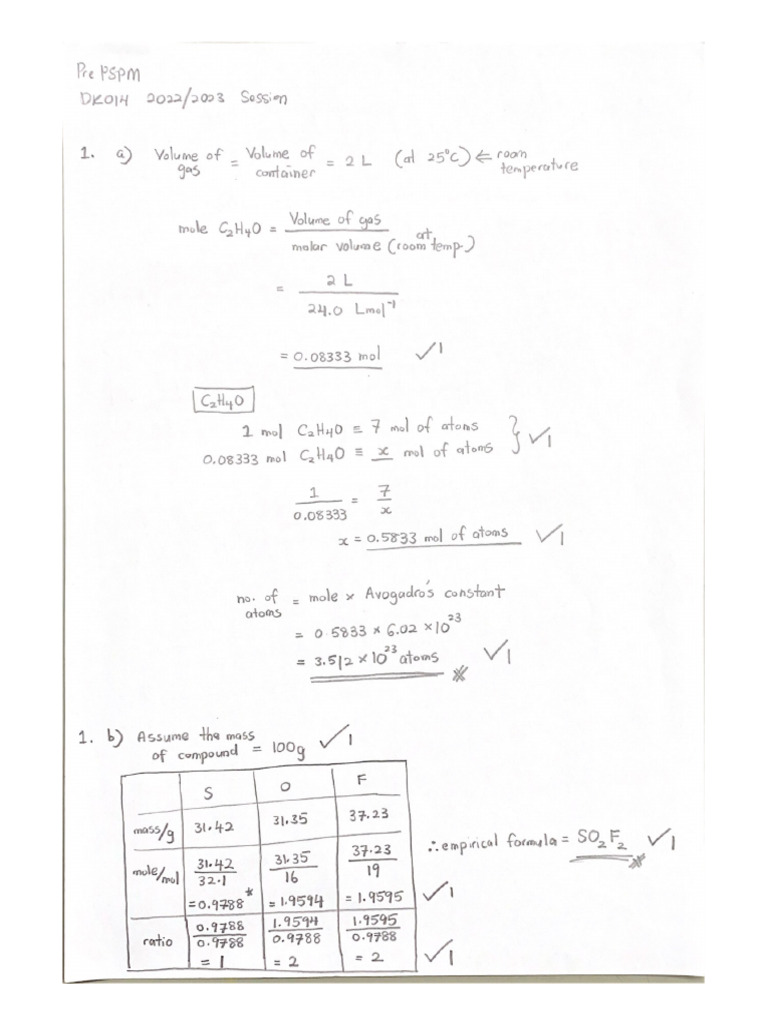 Pre PSPM
DK014 2022/2023 Session
1. a) Volume of gas = Volume of container = 2 L (at 25°C) ⇐ room temperature
mole C₂H₄O = Volume of gas / molar volume (at room temp.)
= 2 L / 24.0 Lmol⁻¹
= 0.08333 mol ✓1
C₂H₄O
1 mol C₂H₄O ≡ 7 mol of atoms
0.08333 mol C₂H₄O ≡ x mol of atoms } ✓1
1 / 0.08333 = 7 / x
x = 0.5833 mol of atoms ✓1
no. of atoms = mole × Avogadro's constant
= 0.5833 × 6.02 × 10²³
= 3.512 × 10²³ atoms ✓1
1. b) Assume the mass
of compound = 100g ✓1
S O F
mass/g 31.42 31.35 37.23
mole/mol 31.42/32.1 31.35/16 37.23/19
=0.9788* = 1.9594 = 1.9595 ✓1
ratio 0.9788/0.9788 1.9594/0.9788 1.9595/0.9788
= 1 = 2 = 2 ✓1
∴ empirical formula = SO₂F₂ ✓1